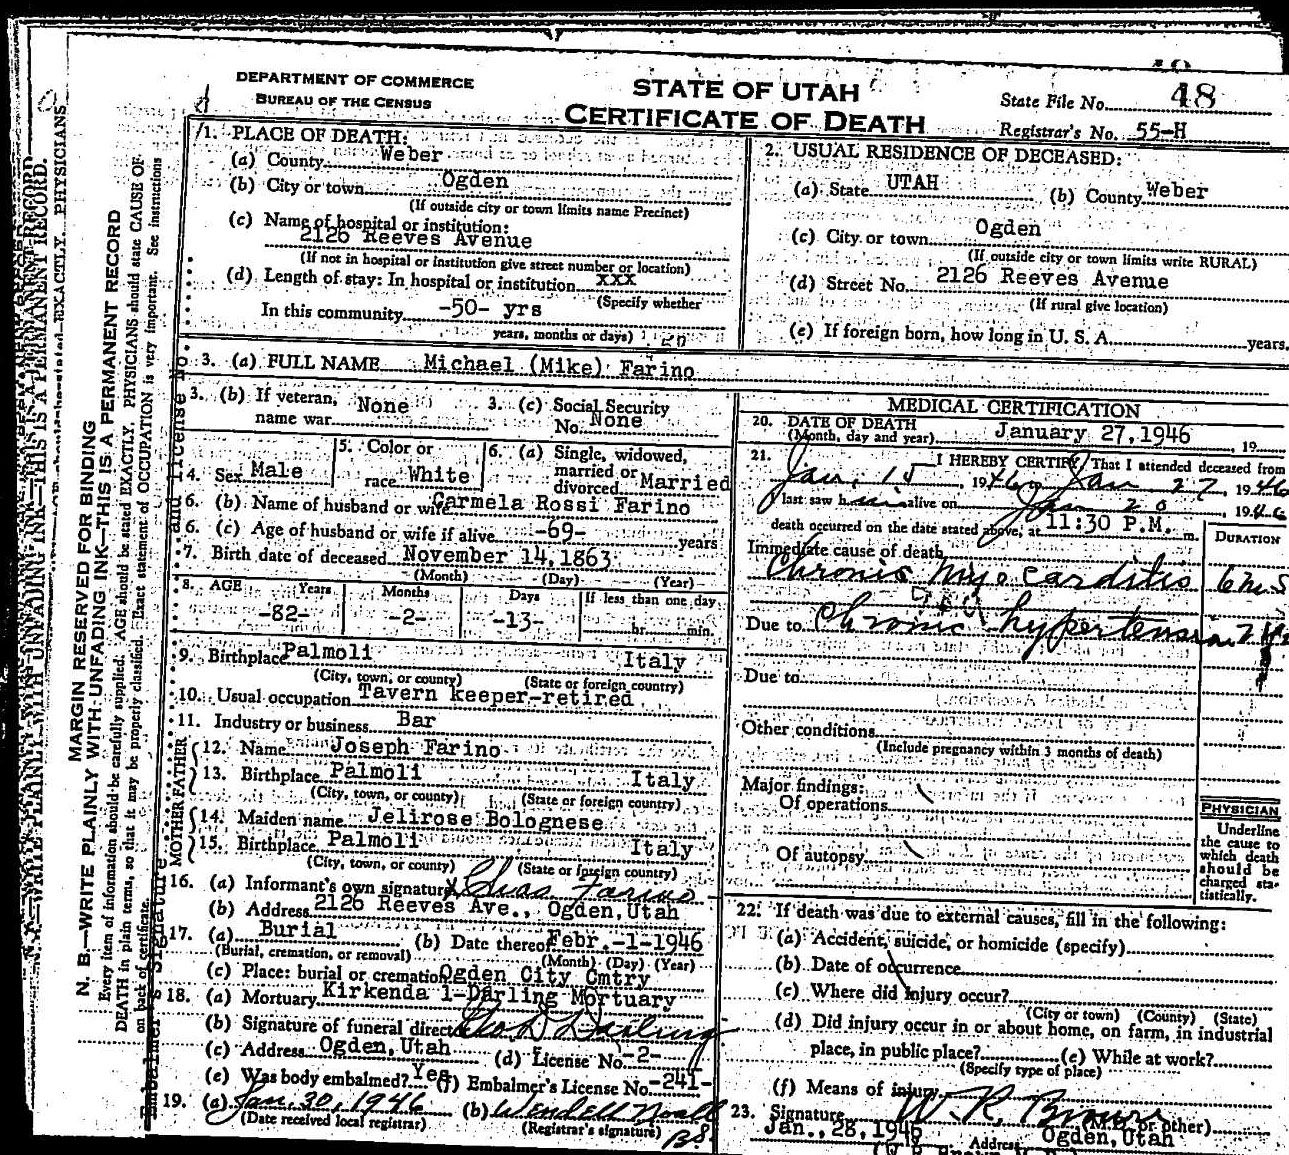 DEPARTMENT OF COMMERCE
BUREAU OF THE CENSUS
STATE OF UTAH
CERTIFICATE OF DEATH
State File No. 48
Registrar's No. 55-H
1. PLACE OF DEATH:
(a) County Weber
(b) City or town Ogden
(If outside city or town limits name Precinct)
(c) Name of hospital or institution:
2126 Reeves Avenue
(If not in hospital or institution give street number or location)
(d) Length of stay: In hospital or institution xxx
(Specify whether
In this community -50- yrs
years, months or days)
2. USUAL RESIDENCE OF DECEASED:
(a) State UTAH (b) County Weber
(c) City or town Ogden
(If outside city or town limits write RURAL)
(d) Street No. 2126 Reeves Avenue
(If rural give location)
(e) If foreign born, how long in U. S. A. years.
3. (a) FULL NAME Michael (Mike) Farino
3. (b) If veteran, name war None
3. (c) Social Security No. None
4. Sex Male
5. Color or race White
6. (a) Single, widowed, married or divorced Married
6. (b) Name of husband or wife Carmela Rossi Farino
6. (c) Age of husband or wife if alive -69- years
7. Birth date of deceased November 14, 1863
(Month) (Day) (Year)
8. AGE Years Months Days If less than one day
-82- -2- -13- hr. min.
9. Birthplace Palmoli Italy
(City, town, or county) (State or foreign country)
10. Usual occupation Tavern keeper-retired
11. Industry or business Bar
FATHER
12. Name Joseph Farino
13. Birthplace Palmoli Italy
(City, town, or county) (State or foreign country)
MOTHER
14. Maiden name Jelirose Bolognese
15. Birthplace Palmoli Italy
(City, town, or county) (State or foreign country)
16. (a) Informant's own signature x Chas Farino
(b) Address 2126 Reeves Ave., Ogden, Utah
17. (a) Burial (b) Date thereof Febr.-1-1946
(Burial, cremation, or removal) (Month) (Day) (Year)
(c) Place: burial or cremation Ogden City Cmtry
18. (a) Mortuary Kirkenda l-Darling Mortuary
(b) Signature of funeral director Geo D Darling
(c) Address Ogden, Utah (d) License No. -2-
(e) Was body embalmed? Yes (f) Embalmer's License No. -241-
19. (a) Jan. 30, 1946 (b) Wendell Noall
(Date received local registrar) (Registrar's signature)
BS
MEDICAL CERTIFICATION
20. DATE OF DEATH
(Month, day and year) January 27, 1946 19
21. I HEREBY CERTIFY, That I attended deceased from
Jan. 15, 1946, to Jan 27, 1946
I last saw him alive on Jan 20, 1946
death occurred on the date stated above, at 11:30 P.M. m.
DURATION
Immediate cause of death
Chronic Myocarditis 6 ms
Due to Chronic hypertension
Due to
Other conditions
(Include pregnancy within 3 months of death)
Major findings:
Of operations
Of autopsy
PHYSICIAN
Underline
the cause to
which death
should be
charged sta-
tistically.
22. If death was due to external causes, fill in the following:
(a) Accident, suicide, or homicide (specify)
(b) Date of occurrence
(c) Where did injury occur?
(City or town) (County) (State)
(d) Did injury occur in or about home, on farm, in industrial
place, in public place? (e) While at work?
(Specify type of place)
(f) Means of injury
23. Signature W. R. Brown (M.D. or other)
Jan., 28, 1946 Address Ogden, Utah
MARGIN RESERVED FOR BINDING
N. B.—WRITE PLAINLY WITH UNFADING INK—THIS IS A PERMANENT RECORD
Every item of information should be carefully supplied. AGE should be stated EXACTLY. PHYSICIANS should state CAUSE OF
DEATH in plain terms, so that it may be properly classified. Exact statement of OCCUPATION is very important. See instructions
on back of certificate.
Embalmer's Signature and License No.